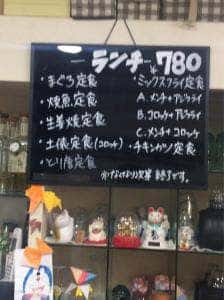 ランチ ¥780
・まぐろ定食
・焼魚定食
・生姜焼定食
・土俵定食(コロッケ)
・とり唐定食
・ミックスフライ定食
A.メンチ+アジフライ
B.コロッケ+アジフライ
C.メンチ+コロッケ
・チキンカツ定食
終了です。